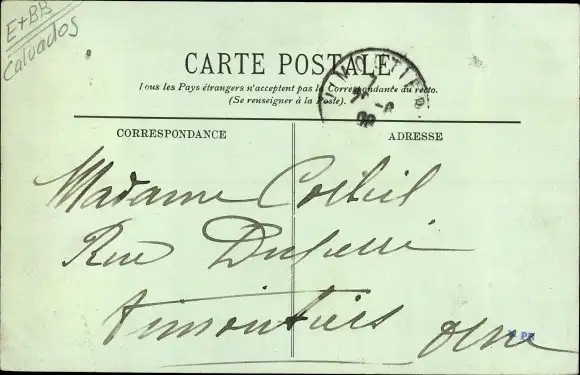 E+BB
Calvados
CARTE POSTALE
Tous les Pays étrangers n'acceptent pas la Correspondance au recto.
(Se renseigner à la Poste).
CORRESPONDANCE
ADRESSE
Madame Corbeil
Rue
Vimoutiers Orne